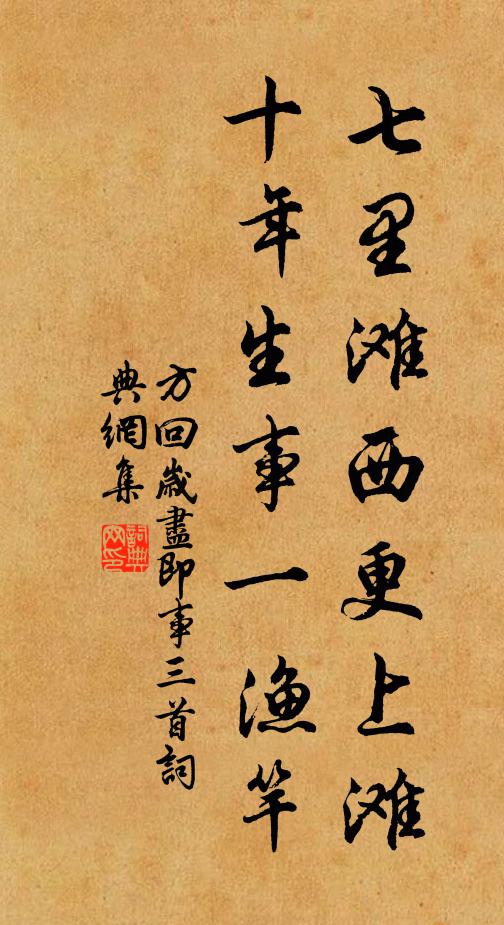 七里滩西更上滩
十年生事一渔竿
方回歲盡即事三首詞
典網集
詞典
网印